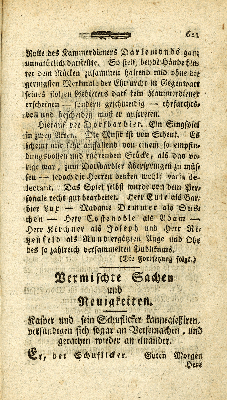 621
Rolle des Kammerdieners Darlemonds ganz
unnatürlich darstellte. So steif, beide Hände hin-
ter dem Rücken zusammen haltend und ohne das
geringste Merkmal der Ehrfurcht in Gegenwart
seines stolzen Gebieters darf kein Kammerdiener
erscheinen — sondern geschmeidig — ehrfurchts-
voll und bescheiden muß er
Hierauf der Dorfbarbier. Ein Singspiel
in zwei Akten. Die Musik ist von Schenk. Es
scheint mir sehr auffallend von einem so empfin-
dungsvollen und rührenden Stücke, als das vo-
rige war, zum Dorfbarbier überspringen zu müs-
sen — jedoch die Herren denken wohl: varia de-
lectant. Das Spiel selbst wurde von dem Per-
sonale recht gut bearbeitet. Herr Tule als Bar-
bier Lux — Madame Demmer als Sus-
chen — Herr Costenoble als Adam —
Herr Kirchner als Joseph und Herr
als Rund vergötzten Auge und Ohr
des so zahlreich versammelten Publikums.
(Die Fortsetzung folgt.)
Vermischte Sachen
und
Neuigkeiten.
Kasper und sein Schuflicker kannegießiren,
verständigen sich sogar an Versemachen, und
gerathen wieder an einander.
Er, der Schuflicker. Guten Morgen
Herr